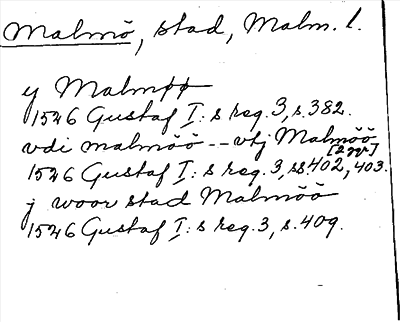 Malmö, stad, Malm. l.
y Malmøø
1526 Gustaf I: s reg. 3, s. 382.
vdi malmöö -- vtj Malmöö
[2 ggr]
1526 Gustaf I: s reg. 3, ss 402, 403.
j woor stad Malmöö
1526 Gustaf I: s reg. 3, s. 409.